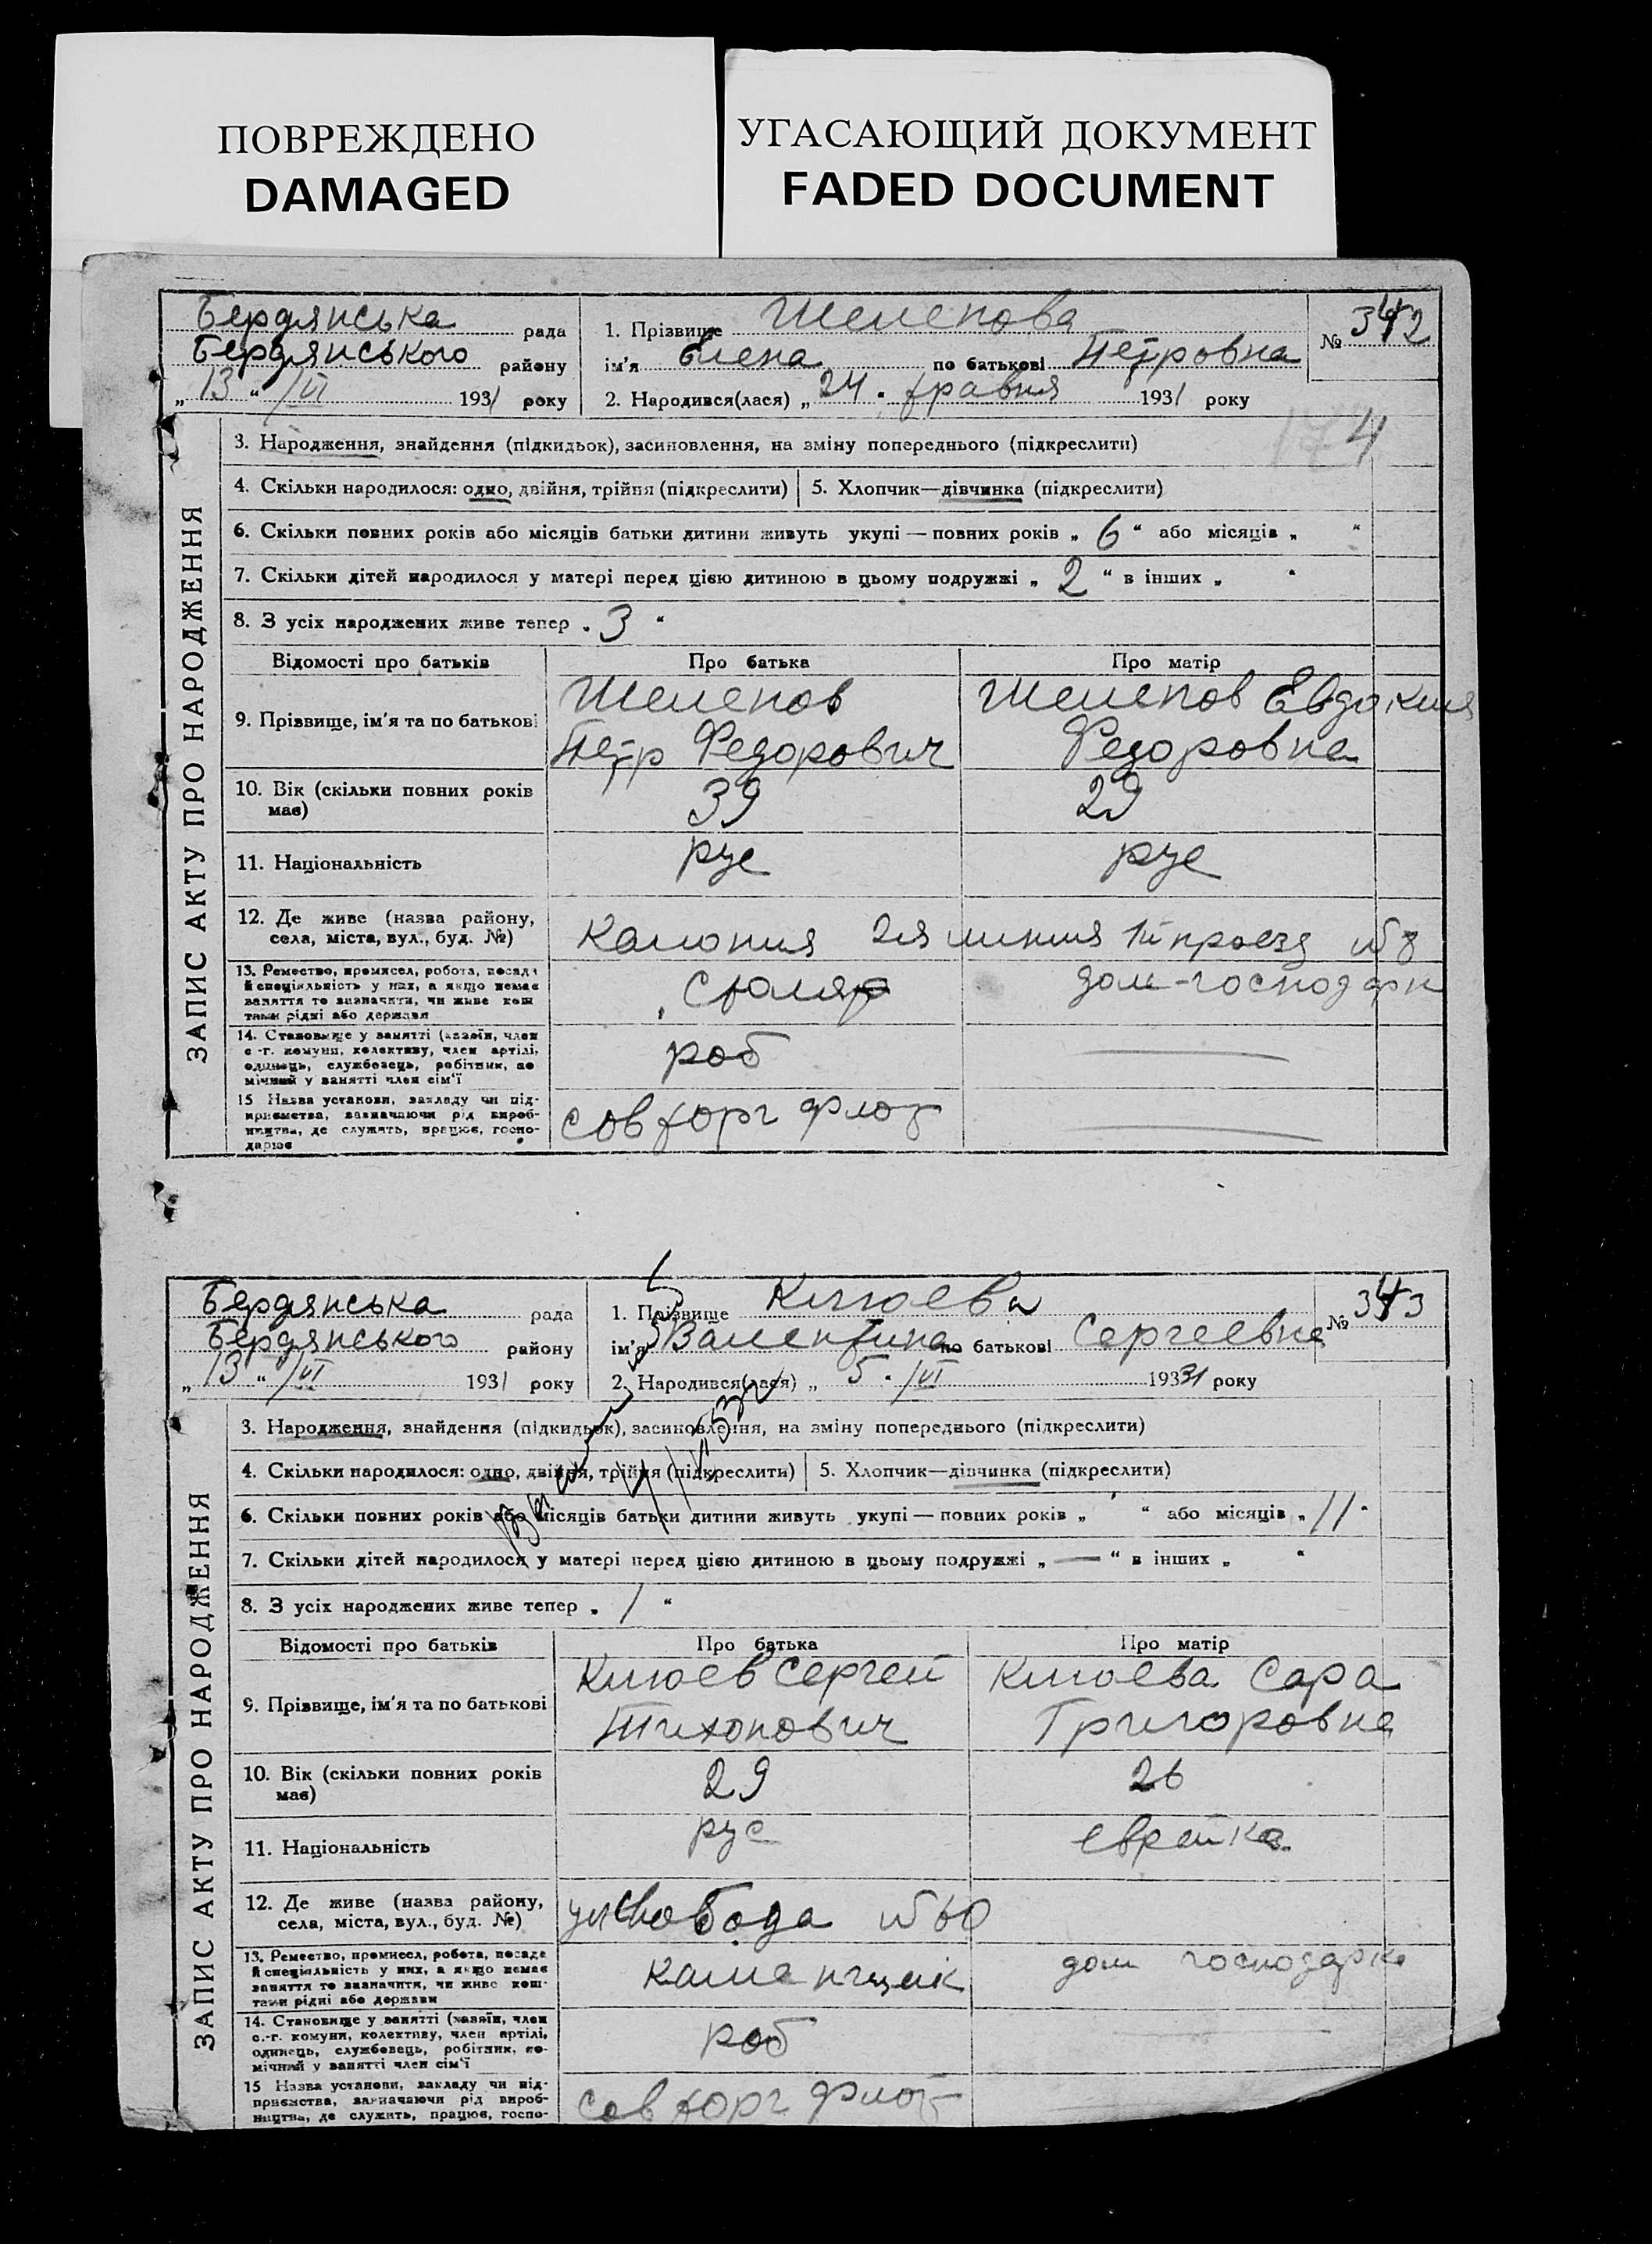 ПОВРЕЖДЕНО
DAMAGED
УГАСАЮЩИЙ ДОКУМЕНТ
FADED DOCUMENT
ЗАПИС АКТУ ПРО НАРОДЖЕННЯ
Бердянська рада
Бердянського району
„ 13 “ /VI 1931 року
1. Прізвище Шелепова
ім'я Елена по батькові Петровна
2. Народився(лася) „ 24 . травня 1931 року
№ 342
174
3. Народження, знайдення (підкидьок), засиновлення, на зміну попереднього (підкреслити)
4. Скільки народилося: одно, двійня, трійня (підкреслити) 5. Хлопчик—дівчинка (підкреслити)
6. Скільки повних років або місяців батьки дитини живуть укупі — повних років „ 6 “ або місяців „ “
7. Скільки дітей народилося у матері перед цією дитиною в цьому подружжі „ 2 “ в інших „ “
8. З усіх народжених живе тепер „ 3 “
Відомості про батьків Про батька Про матір
9. Прізвище, ім'я та по батькові
Шелепов
Петр Федорович
Шелепов Евдокия
Федоровна
10. Вік (скільки повних років
має)
39 29
11. Національність рус рус
12. Де живе (назва району,
села, міста, вул., буд. №)
Колония 2я линия 1й проезд №8
13. Ремество, промисел, робота, посада
й спеціяльність у них, а якщо немає
заняття то зазначити, чи живе кош
тами рідні або держави
Столяр дом-господарк
14. Становище у занятті (хазяїн, член
с.-г. комуни, колективу, член артілі,
одинець, службовець, робітник, по
мічний у занятті член сім'ї
роб
15 Назва установи, закладу чи під-
приємства, зазначаючи рід вироб-
ництва, де служить, працює, госпо-
дарює
совторгфлот
ЗАПИС АКТУ ПРО НАРОДЖЕННЯ
Бердянська рада
Бердянського району
„ 13 “ /VI 1931 року
1. Прізвище Клюева
ім'я Валентина по батькові Сергеевна
2. Народився(лася) „ 5 . /VI 1931 року
№ 343
3. Народження, знайдення (підкидьок), засиновлення, на зміну попереднього (підкреслити)
4. Скільки народилося: одно, двійня, трійня (підкреслити) 5. Хлопчик—дівчинка (підкреслити)
6. Скільки повних років або місяців батьки дитини живуть укупі — повних років „ “ або місяців „ 11 “
7. Скільки дітей народилося у матері перед цією дитиною в цьому подружжі „ — “ в інших „ “
8. З усіх народжених живе тепер „ 1 “
Відомості про батьків Про батька Про матір
9. Прізвище, ім'я та по батькові
Клюев Сергей
Тихонович
Клюева Сара
Григоровна
10. Вік (скільки повних років
має)
29 26
11. Національність рус еврейка
12. Де живе (назва району,
села, міста, вул., буд. №)
ул Свобода №60
13. Ремество, промисел, робота, посада
й спеціяльність у них, а якщо немає
заняття то зазначити, чи живе кош-
тами рідні або держави
каменщик дом господарка
14. Становище у занятті (хазяїн, член
с.-г. комуни, колективу, член артілі,
одинець, службовець, робітник, по-
мічний у занятті член сім'ї
роб
15 Назва установи, закладу чи під-
приємства, зазначаючи рід вироб-
ництва, де служить, працює, госпо-
совторгфлот